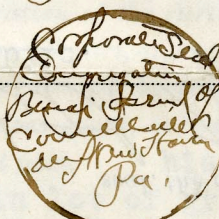 Corporate Seal
Congregation
Benai Israel of
Connellsville
and New Haven
Pa.